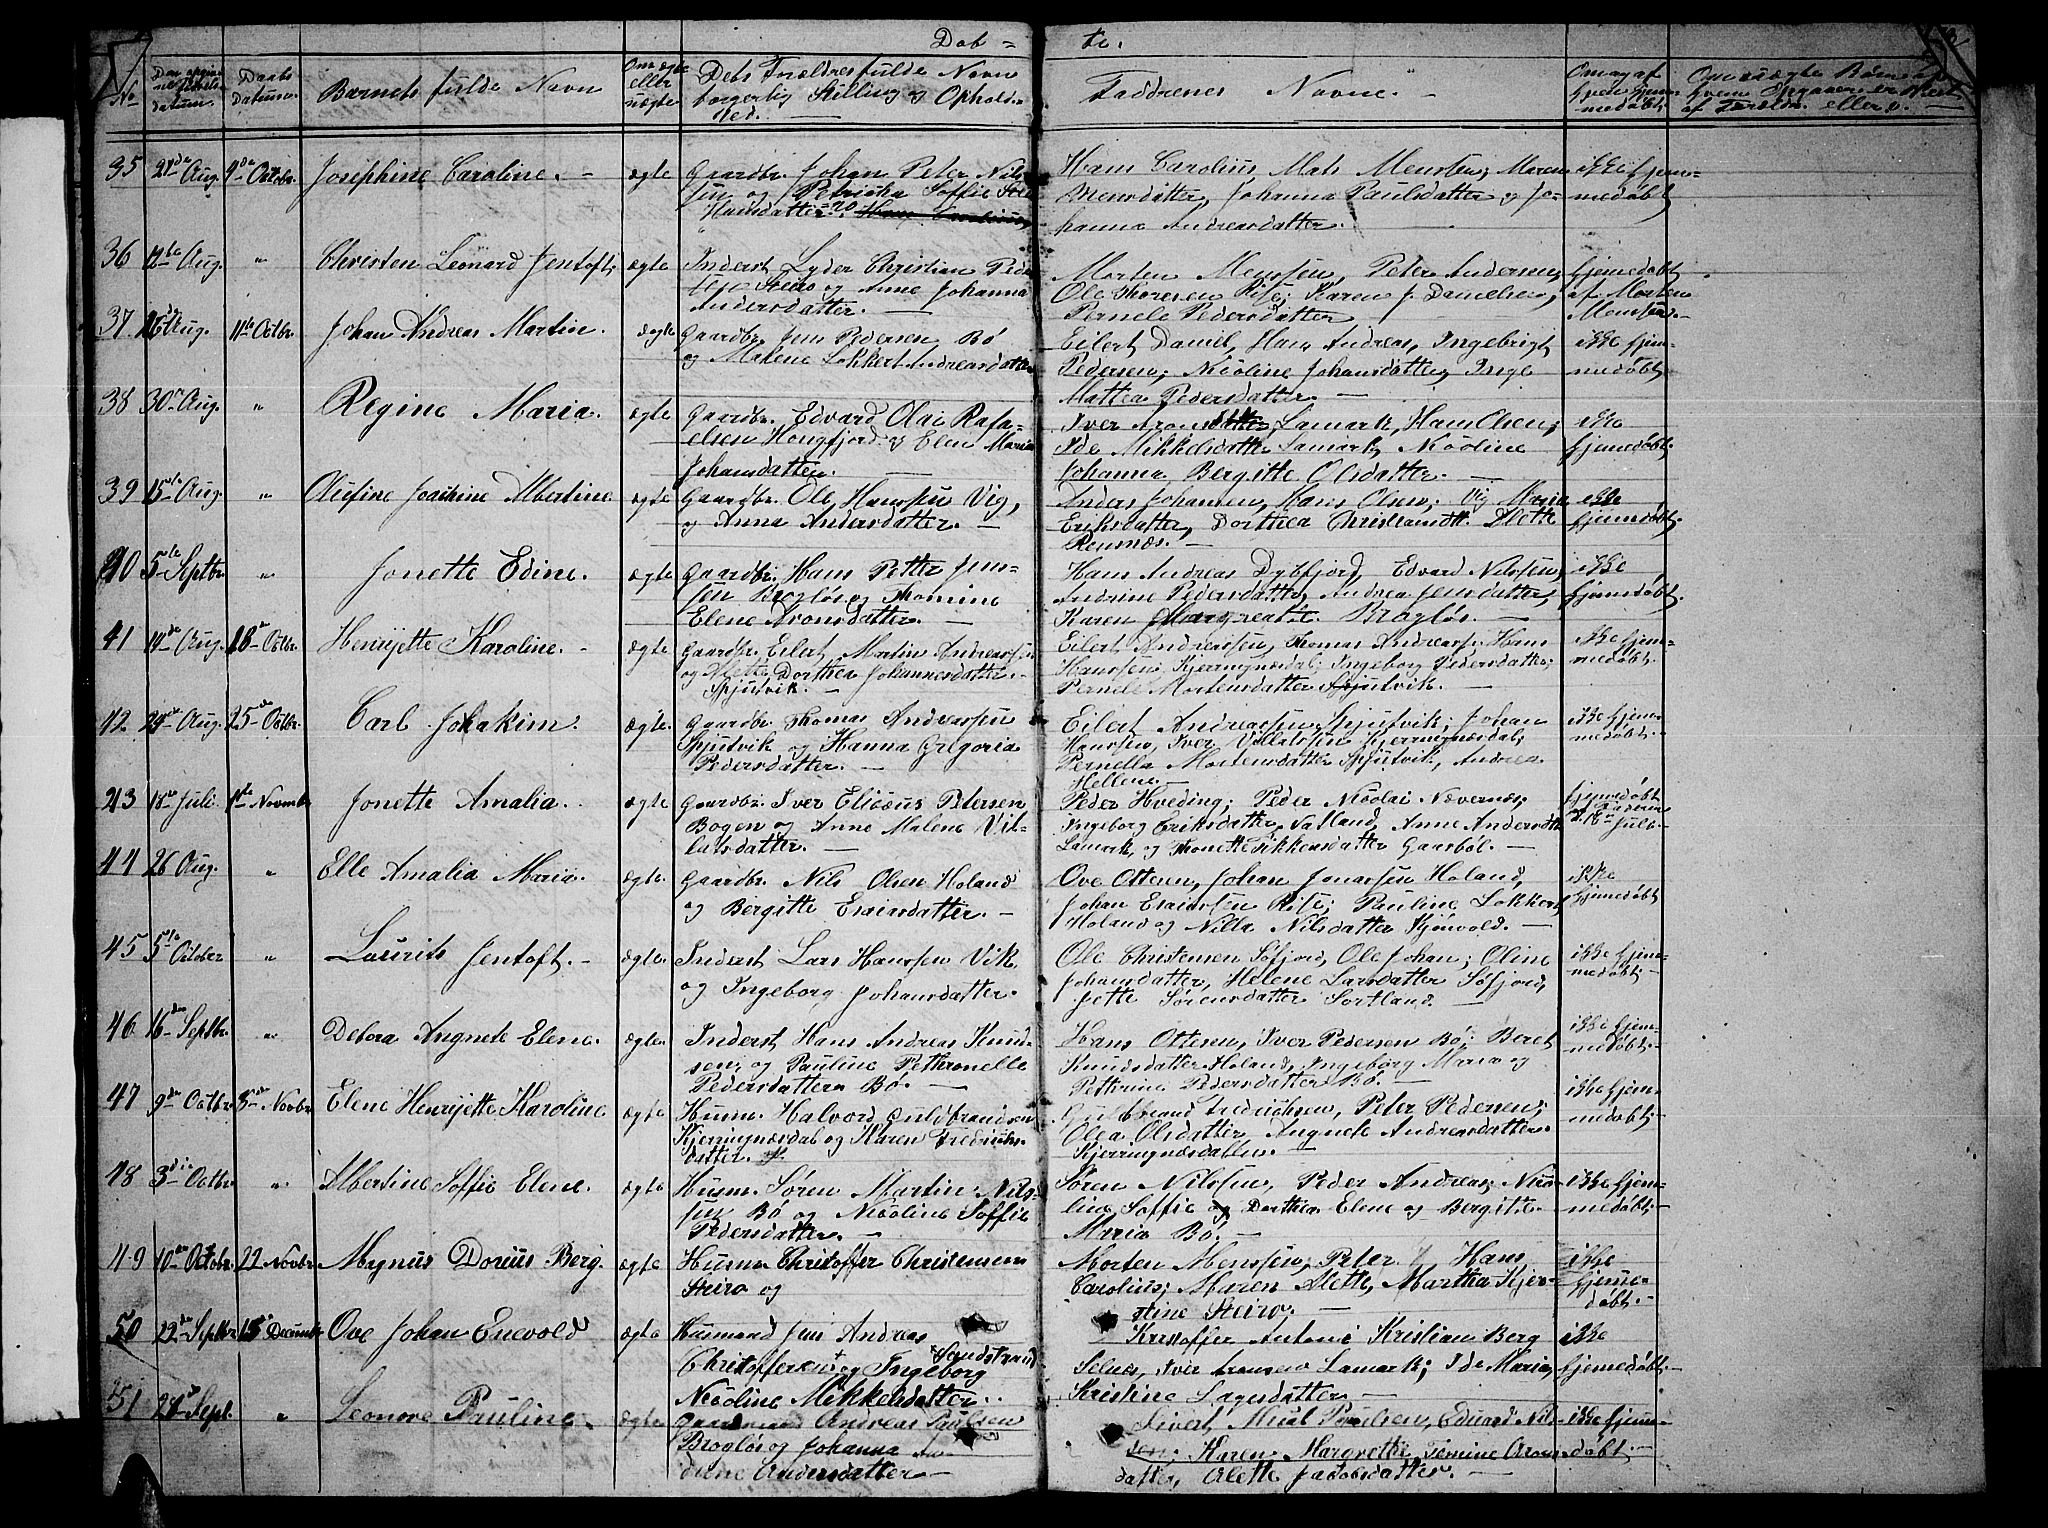 Døb= te.
No
Datum
Daabs Datum
Barnets fulde Navn
Om ægte eller uægte
Dets Forældres fulde Navn borgerlig Stilling og Opholds- sted.
Faddrenes Navne.
35 Aug. 4de Octbr. Josephine Caroline. ægte Gaardbr. Johan Peter Nils-
sen og Soffie
Hansdatter
Hans Carolius, Mats Monssen; Maren
Monsdatter, Johanna Paulsdatter og Jo-
hanna Andreasdatter.
ikke hjem-
medøbt
36 12te Aug. " Christen Leonard Jentoft, ægte Inderst Lyder Christian Peder-
og Anne Johanna
Andersdatter.
Morten Monssen, Peter Andersen,
Ole Thoresen Rise; Karen J. Danielsen,
Pernele Pedersdatter
hjemedøbt
af Morten
Monssen.
37 Aug. 11te Octbr. Johan Andreas Martin. ægte Gaardbr. Jens Pedersen Bø
og Malene Lokkert Andreasdatter
Eilert Daniel, Hans Andreas, Ingebrigt
Pedersen; Nicoline Johansdatter, Inge
Mattea Pedersdatter.
ikke hjem-
medøbt
38 30te Aug. " Regine Maria. ægte Gaardbr. Edvard Olai Rafa-
elsen Hongfjord og Elen Maria
Johansdatter.
Iver Lamark, Hans Olsen;
Ide Mikkelsdatter Lamark, Nicoline
Johanna Bergitte Olsdatter.
ikke
hjemmedøbt.
39 15de Aug. " Olufine Joachine Albertine ægte Gaardbr. Ole Hanssen Vig,
og Anna Andersdatter.
Anders Johansen, Hans Olsen; Vig Maria
Eriksdatter, Dorthea Christiansdtr. Alette
ikke
hjemedøbt.
40 5te Septbr. " Jonette Edine. ægte Gaardbr. Hans Petter Jen-
sen Brogløs og Thomine
Elene Aronsdatter.
Hans Andreas Dybfjord, Edvard Nilssen,
Andrine Pedersdatter, Andrea Jensdatter,
Karen Margreate Brogløs.
ikke
hjemedøbt.
41 14de Aug. 18de Octbr. Henrijette Karoline. ægte Gaardbr. Eilert Martin Andreassen
og Alette Dorthea Johannesdatter.
Spjutvik.
Eilert Andreassen, Thomas Andreass. Hans
Hanssen, Kjerringnæsdal; Ingeborg Pedersdatter;
Pernele Mortensdatter Spjutvik.
ikke hjem-
medøbt.
42 24de Aug. 25de Octbr. Carl Johakim. ægte Gaardbr. Thomas Andreassen
Spjutvik og Hanna Gregoria
Pedersdatter.
Eilert Andreassen Spjutvik; Johan
Hanssen, Iver Villatssen Kjerringnæsdal;
Pernella Mortensdatter Spjutvik, Andrea
Hellene.
ikke hjem-
medøbt.
43 18de Juli 1ste Novembr Jonette Amalia. ægte Gaardbr. Iver Elicæus Petersen
Bogen og Anne Malene Vil-
latsdatter.
Peder Hveding; Peder Nicolai Nævernæs;
Ingeborg Eriksdatter Valland, Anne Andersdtr
Lamark, og Thonette Gaarsbøl.
hjemedøbt
af Faderen
Juli.
44 26 Aug. " Elle Amalia Maria. ægte. Gaardbr. Nils Olsen Holand
og Bergitte Esaiasdatter.
Ove Ottesen, Johan Jonassen Holand,
Johan Esaiassen Rise; Pauline Lokkert
Holand og Nilla Nilsdatter
ikke
hjemedøbt
45 5te October " Laurits Jentoft. ægte. Inderst Lars Hanssen Vik
og Ingeborg Johansdatter.
Ole Christensen Søfjord, Ole Johan; Oline
Johansdatter, Helene Larsdatter Søfjord,
Jette Sørensdatter Sortland.
ikke hjem-
medøbt.
46 16de Septbr. " Debora Angnete Elene. ægte. Inderst Hans Andreas Knud-
sen og Pauline Petternelle
Pedersdatter Bø.
Hans Ottesen, Iver Pedersen Bø; Beret
Knudsdatter Holand, Ingeborg Maria og
Petterine Pedersdatter Bø.
ikke hjem-
medøbt.
47 9de Octbr. Novbr. Elene Henrijette Karoline ægte Husm. Halvord Guldbrandsen
Kjerringnæsdal og Karen Fredriks-
datter.
Guldbrand Fredriksen, Peter Pedersen;
Olea Olsdatter Angnete Andreasdatter
Kjerringnæsdalen.
ikke hjem-
medøbt.
48 3die Octbr. " Albertine Soffie Elene. ægte Husm. Søren Martin Nils-
sen Bø og Nicoline Soffie
Pedersdatter.
Søren Nilssen, Peder Andreas; Nico-
line Soffie og Dorthea Elene og Bergitte
Maria Bø.
ikke hjem-
medøbt.
49 10de Octobr. 22 Novbr. Magnus Dorius Berg. ægte Husm. Christoffer Christensen
Steiro og
Morten Monssen, Peter Hans
Carolius; Maren Alette, Martha Kjer-
stine Steiro.
ikke
hjeme-
døbt.
50 22de Septbr Decembr Ove Johan Enevold ægte Husmand Jens Andreas
Christoffersen og Ingeborg Sandstrand
Nicoline Mikkelsdatter.
Kristoffer Antoni Kristian Berg
Selnes, Iver Aronsen Lamark; Ida Maria,
Kristine Lagesdatter.
ikke
hjemedøbt.
51 Sept. " Leonore Pauline. ægte Gaardmand Andreas Paulsen
Brogløs og Johanna
dine Andersdatter
Sivert Paulsen, Eduard Nils-
sen, Karen Margrethe, Temine Arons-
datter, Alette Jakobsdatter.
ikke hjem-
døbt.